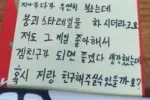 지나가다가 우연히 봤는데
붕괴 스타레일을 하시더라고요
저도 그 게임 좋아해서
겜친구가 되면 좋겠다 생각했는데
혹시 저랑 친구해주실수있을까요?